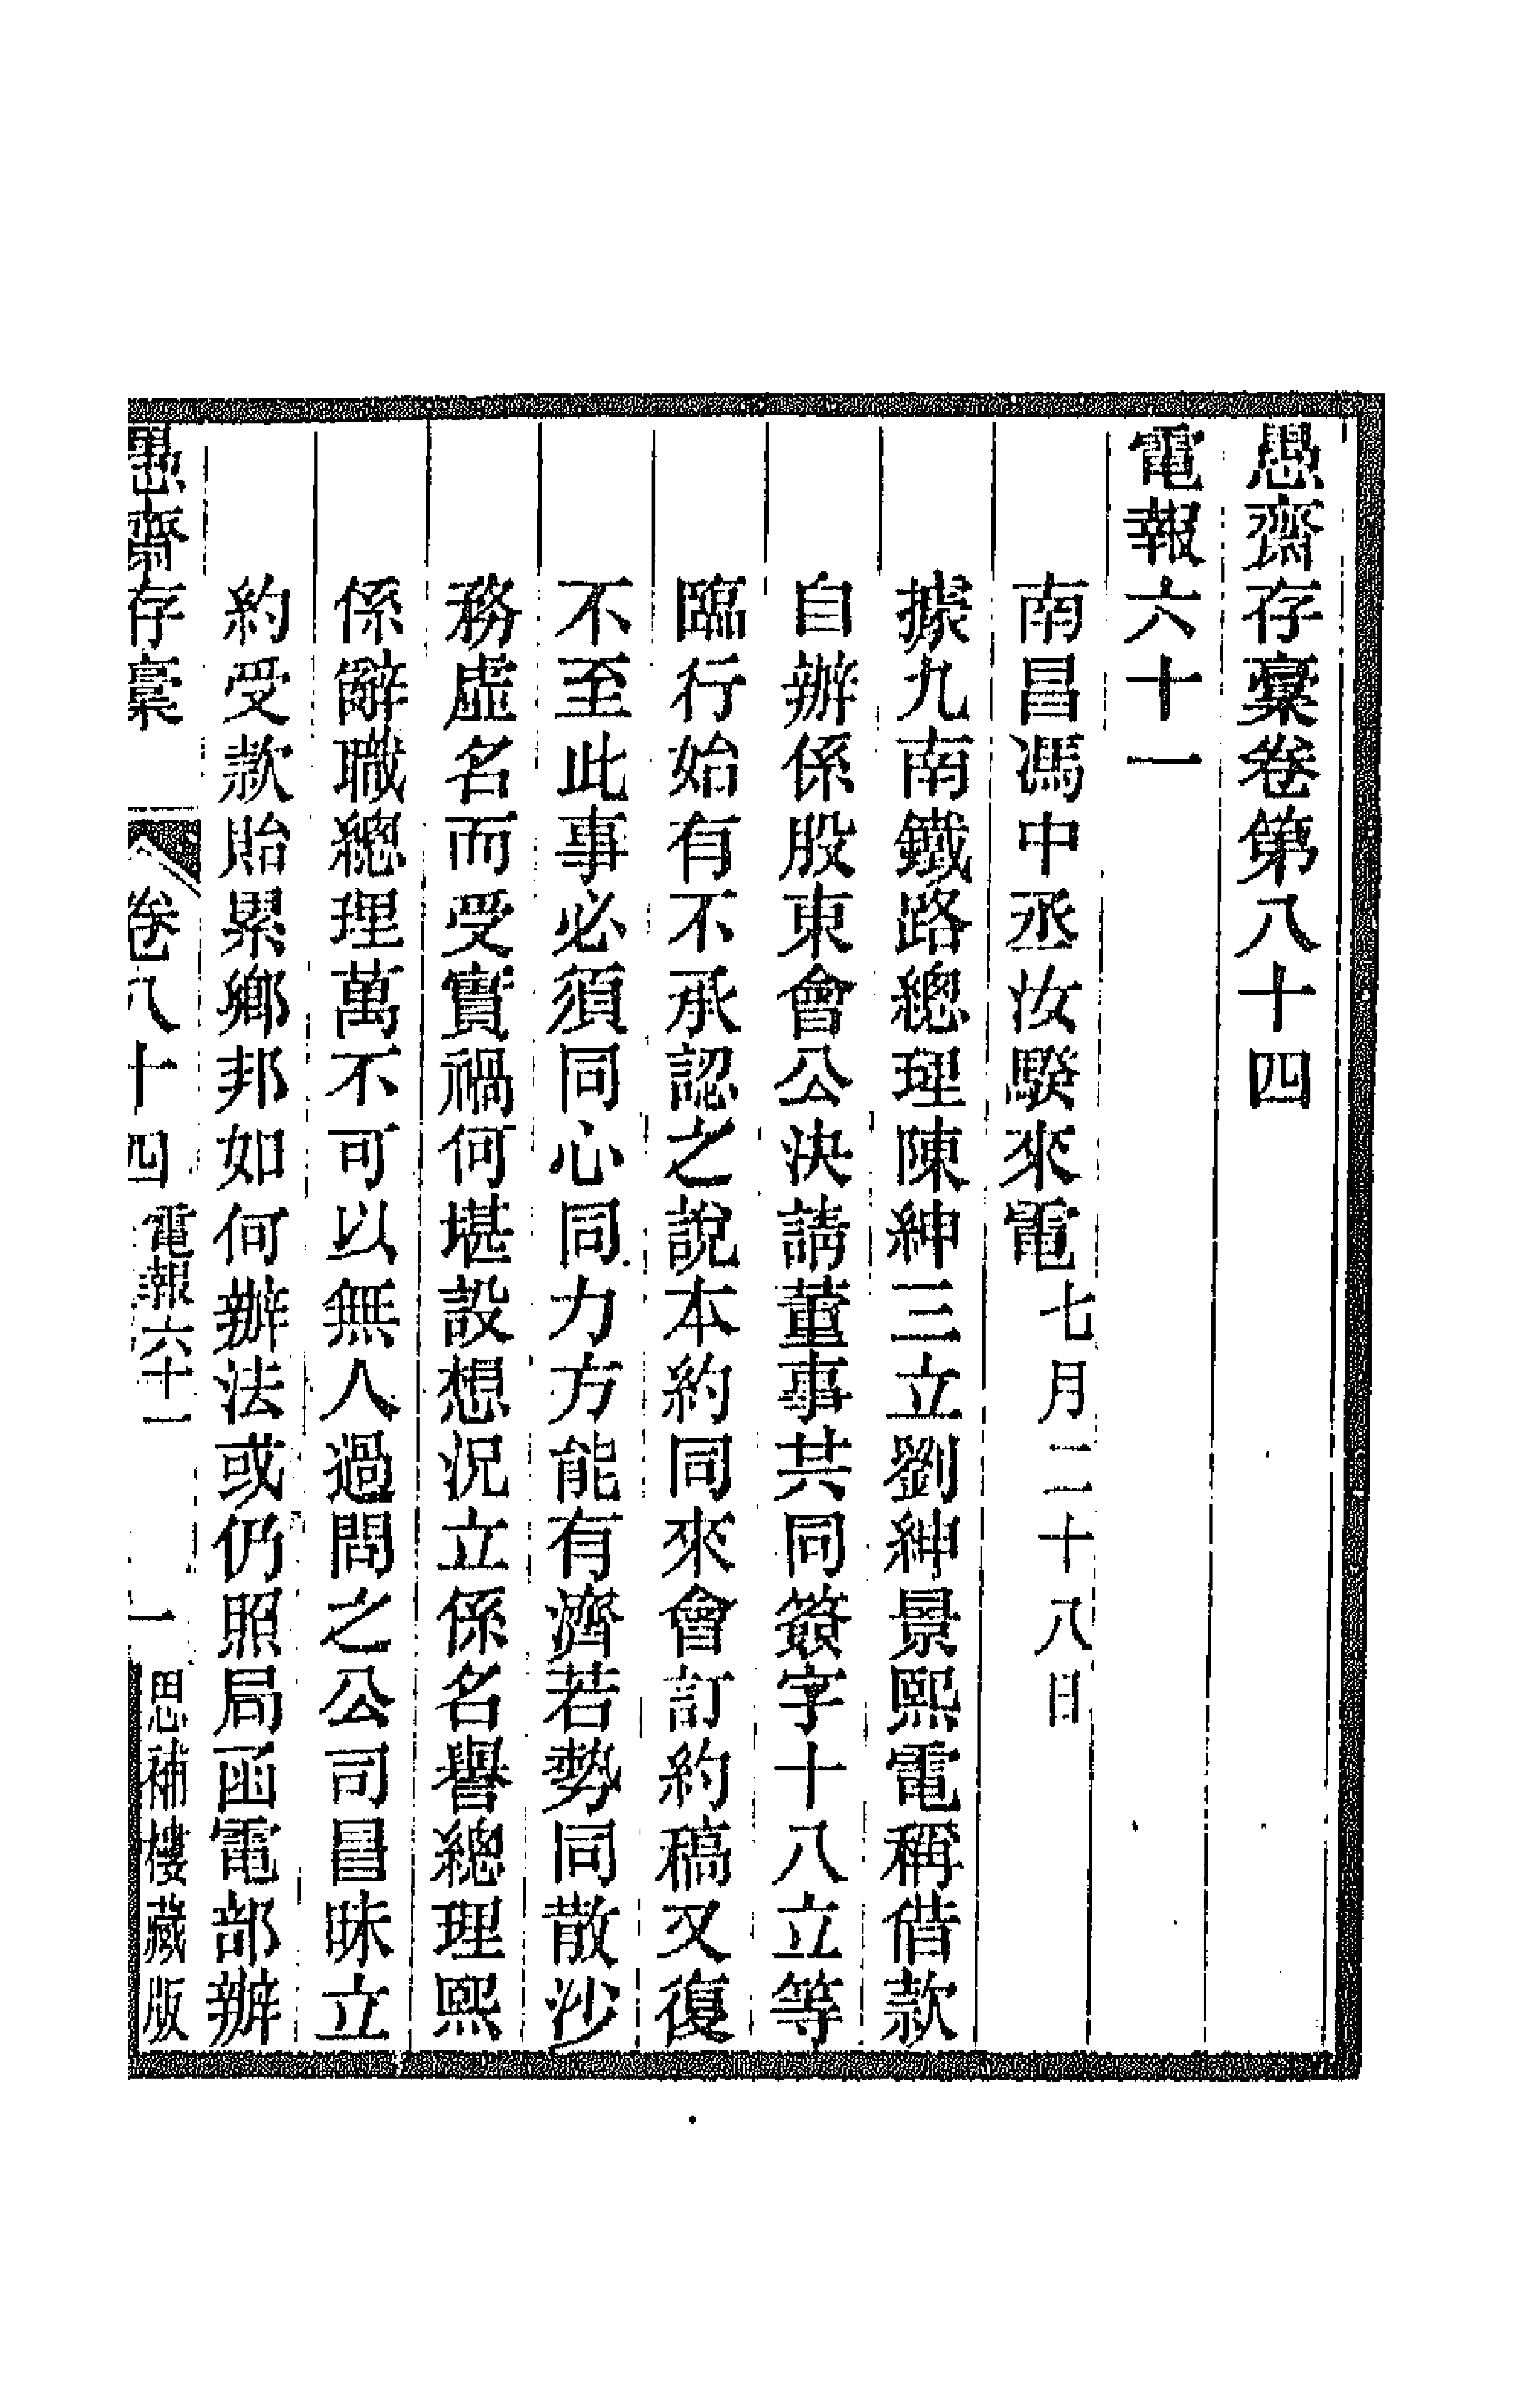 愚齋存稾卷第八十四
電報六十一
南昌馮中丞汝騤來電七月二十八日
據九南鐵路總理陳紳三立劉紳景熙電稱借款
自辦係股東會公決請董事共同簽字十八立等
臨行始有不承認之說本約同來會訂約稿又復
不至此事必須同心同力方能有濟若勢同散沙
務虛名而受實禍何堪設想況立係名譽總理熙
係辭職總理萬不可以無人過問之公司冒昧立
約受款貽累鄉邦如何辦法或仍照局函電部辦
愚齋存稾 卷八十四 電報六十一 一 思補樓藏版